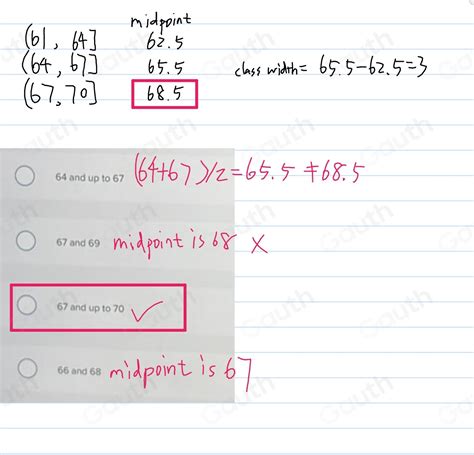 midpoint
(61, 64] 62.5
(64, 67] 65.5 class width = 65.5-62.5=3
(67, 70] 68.5
64 and up to 67 (64+67)/2=65.5≠68.5
67 and 69 midpoint is 68 ×
67 and up to 70 ✓
66 and 68 midpoint is 67